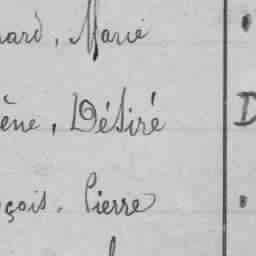 nard, Marie
ène, Désiré D
nçois, Pierre